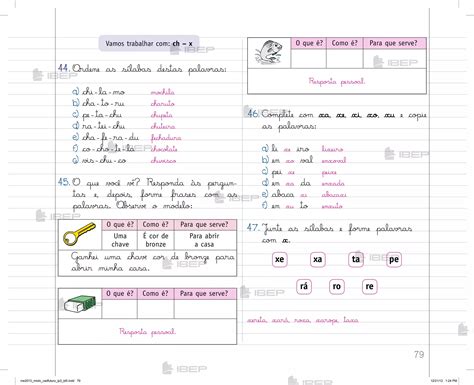 Vamos trabalhar com: ch – x
44. Ordene as sílabas destas palavras:
a) chi - la - mo mochila
b) cha - to - ru charuto
c) pe - ta - chu chupeta
d) ra - tei - chu chuteira
e) cha - fe - ra - du fechadura
f) co - cho - te - la chocolate
g) vis - chu - co chuvisco
45. O que você vê? Responda às pergun-
tas e, depois, forme frases com as
palavras. Observe o modelo:
O que é? Como é? Para que serve?
Uma chave É cor de bronze Para abrir a casa
Ganhei uma chave cor de bronze para
abrir minha casa.
O que é? Como é? Para que serve?
Resposta pessoal.
O que é? Como é? Para que serve?
Resposta pessoal.
46. Complete com xa, xe, xi, xo, xu e copie
as palavras:
a) li xe iro lixeiro
b) en xo val enxoval
c) pei xe peixe
d) en xa da enxada
e) a ba xi abacaxi
f) en xu to enxuto
47. Junte as sílabas e forme palavras
com x.
xe xa ta pe
rá ro re
xereta, xará, roxa, xarope, taxa
79
IBEP